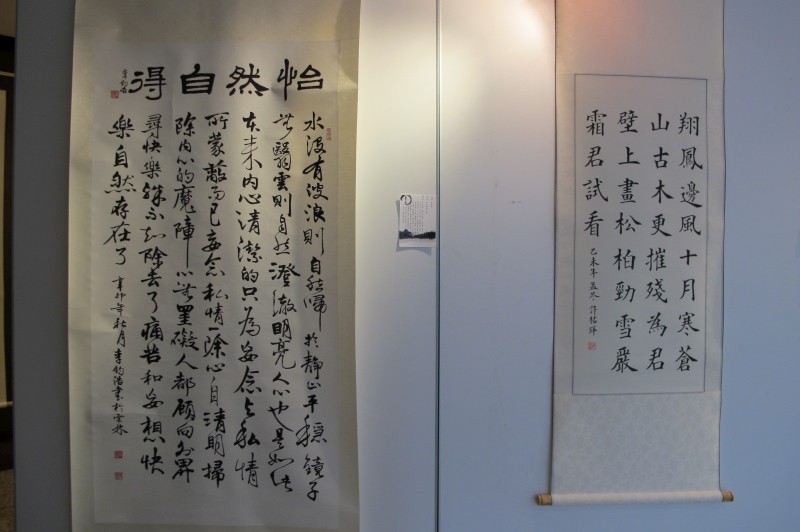 怡然自得
水沒有波浪則自然歸於靜止平穩鏡子
無翳雲則自然澄澈明亮人心也是如此
本來內心清潔的只為妄念與私情
所蒙蔽而已妄念私情一除心自清明掃
除內心的魔障心無罣礙人都顧向外界
尋快樂殊不知除去了痛苦和妄想快
樂自然存在了 辛卯年秋月李鈞浩書於雲林
翔鳳邊風十月寒蒼
山古木更摧殘為君
壁上畫松柏勁雪嚴
霜君試看 乙未年孟冬許